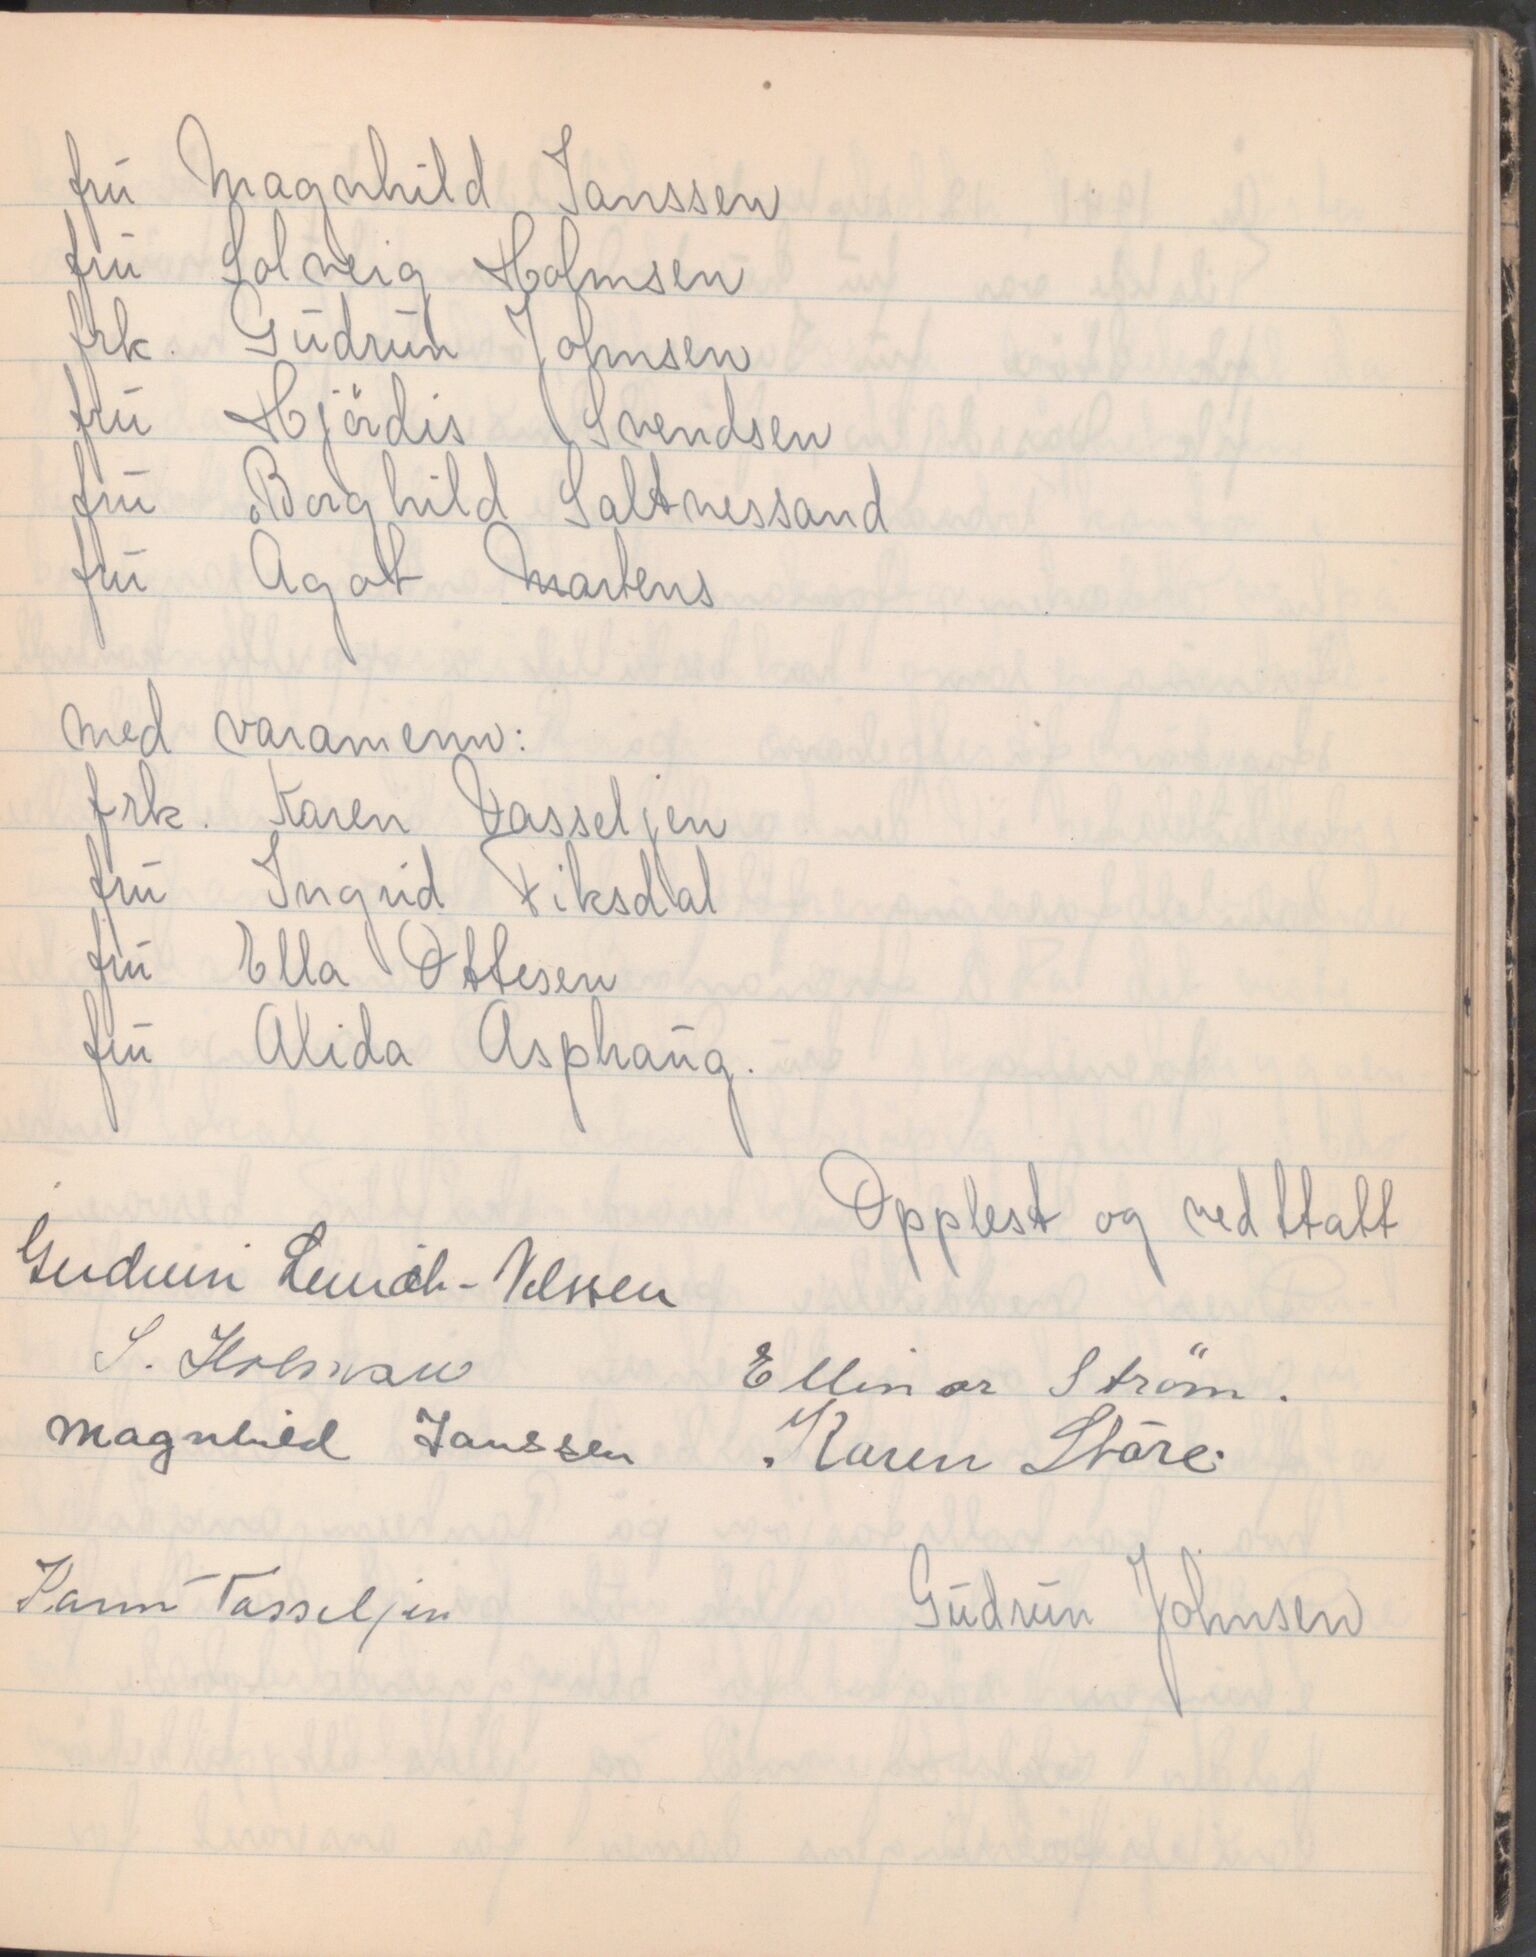 frū Magnhild Janssen
frū Solveig Holmsen
frk. Gūdrūn Johnsen
frū Hjördis Svendsen
frū Borghild Saltnessand
frū Ågot Martens
med varamenn:
frk. Karen Vasseljen
frū Ingrid Fiksdal
frū Ella Ottesen
frū Alida Asphaūg.
Opplest og vedttatt
Gudrun
S. Holmsen Ellinor Ström.
Magnhild Janssen Karen Støre.
Karen Vasseljen Gūdrūn Johnsen